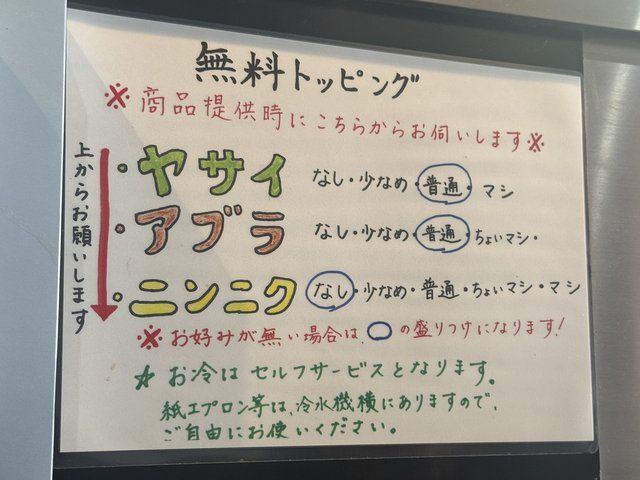 無料トッピング
※商品提供時にこちらからお伺いします※
上からお願いします
・ヤサイ なし・少なめ・普通・マシ
・アブラ なし・少なめ・普通・ちょいマシ・
・ニンニク なし・少なめ・普通・ちょいマシ・マシ
※お好みが無い場合は、○の盛りつけになります!
☆お冷はセルフサービスとなります。
紙エプロン等は、冷水機横にありますので、
ご自由にお使いください。